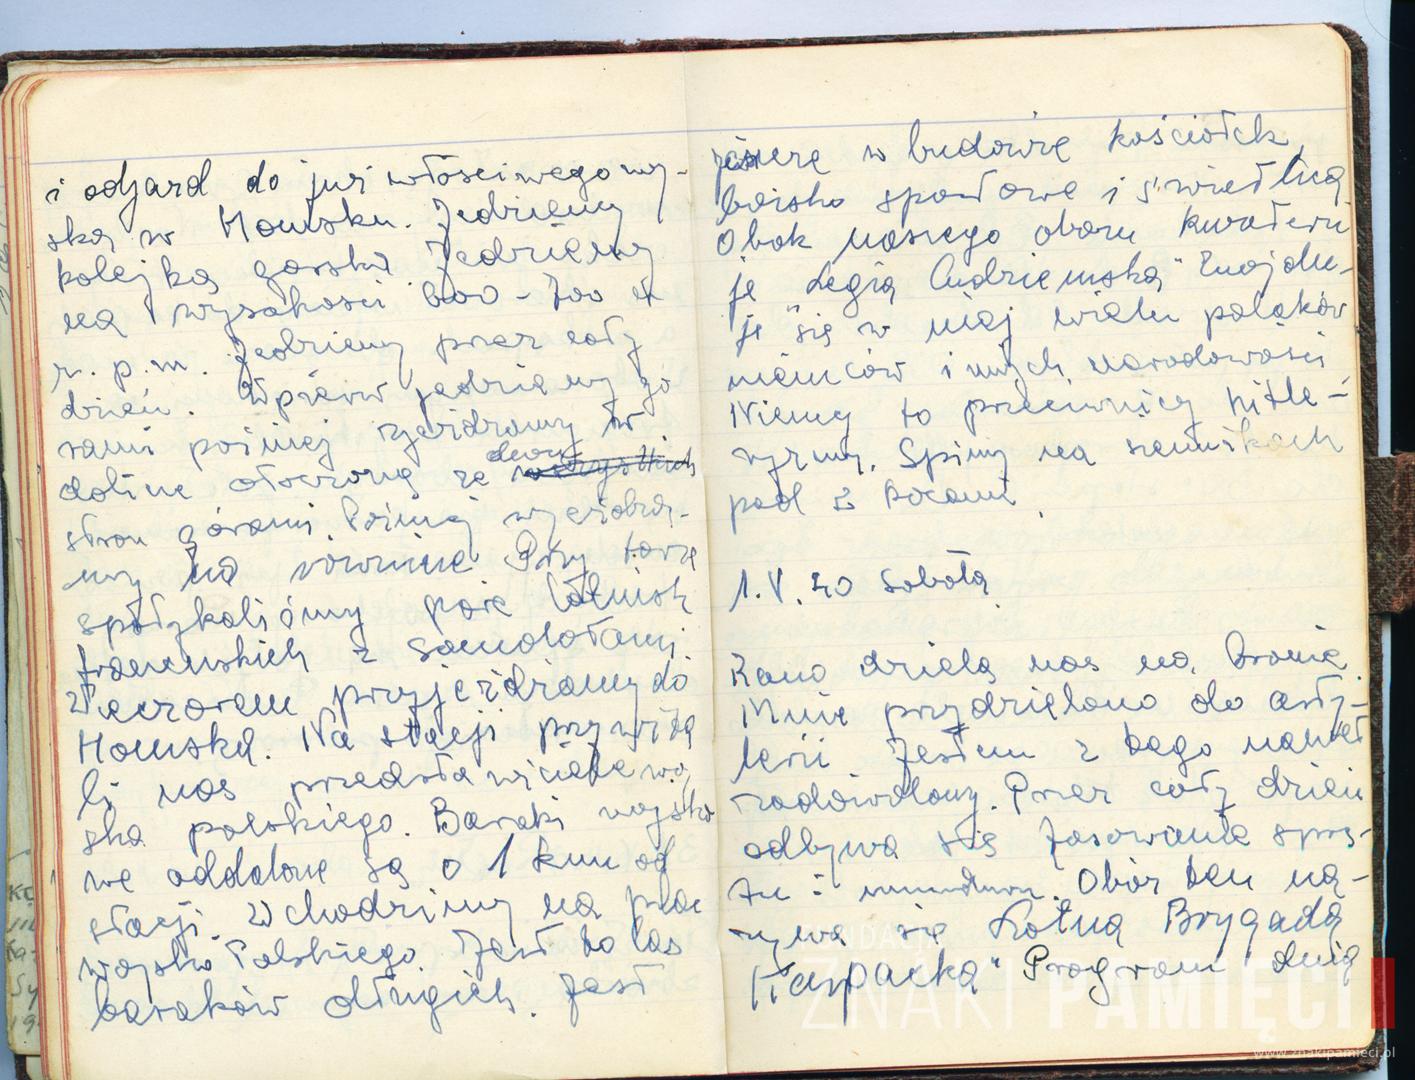 i odjazd do już właściwego woj-
ska w Homsku. Jedziemy
kolejką górską Jedziemy
na wysokości 600 - 700 m
n. p. m. Jedziemy przez cały
dzień. Wpierw jedziemy gó
rami później zjeżdżamy w
dolinę otoczoną ze dwóch wszystkich
stron górami. Później wyjeżdża-
my na równinę Przy torze
spotykaliśmy parę lotnisk
francuskich z samolotami.
Wieczorem przyjeżdżamy do
Homska. Na stacji przywita
li nas przedstawiciele woj
ska polskiego. Baraki wojsko
we oddalone są o 1 km od
stacji. Wchodzimy na plac
wojska Polskiego. Jest to las
baraków długich. Jest
jeszcze w budowie kościółek,
boisko sportowe i świetlica
Obok naszego obozu kwateru
je "Legia Cudziemska" Znajdu-
je się w niej wielu polaków
niemców i innych narodowości
Niemcy to przeciwnicy hitle-
ryzmu. Śpimy na siennikach
pod 2 kocami.
1. V. 40 Sobota
Rano dzielą nas na bronie.
Mnie przydzielono do arty-
lerii Jestem z tego nawet
zadowolony. Przez cały dzień
odbywa się fasowanie sprzę-
tu i munduru. Obóz ten na-
zywa się Kolna Brygada
Karpacka" Program dnia
FUNDACJA
ZNAKI PAMIĘCI
www.znakipamieci.pl